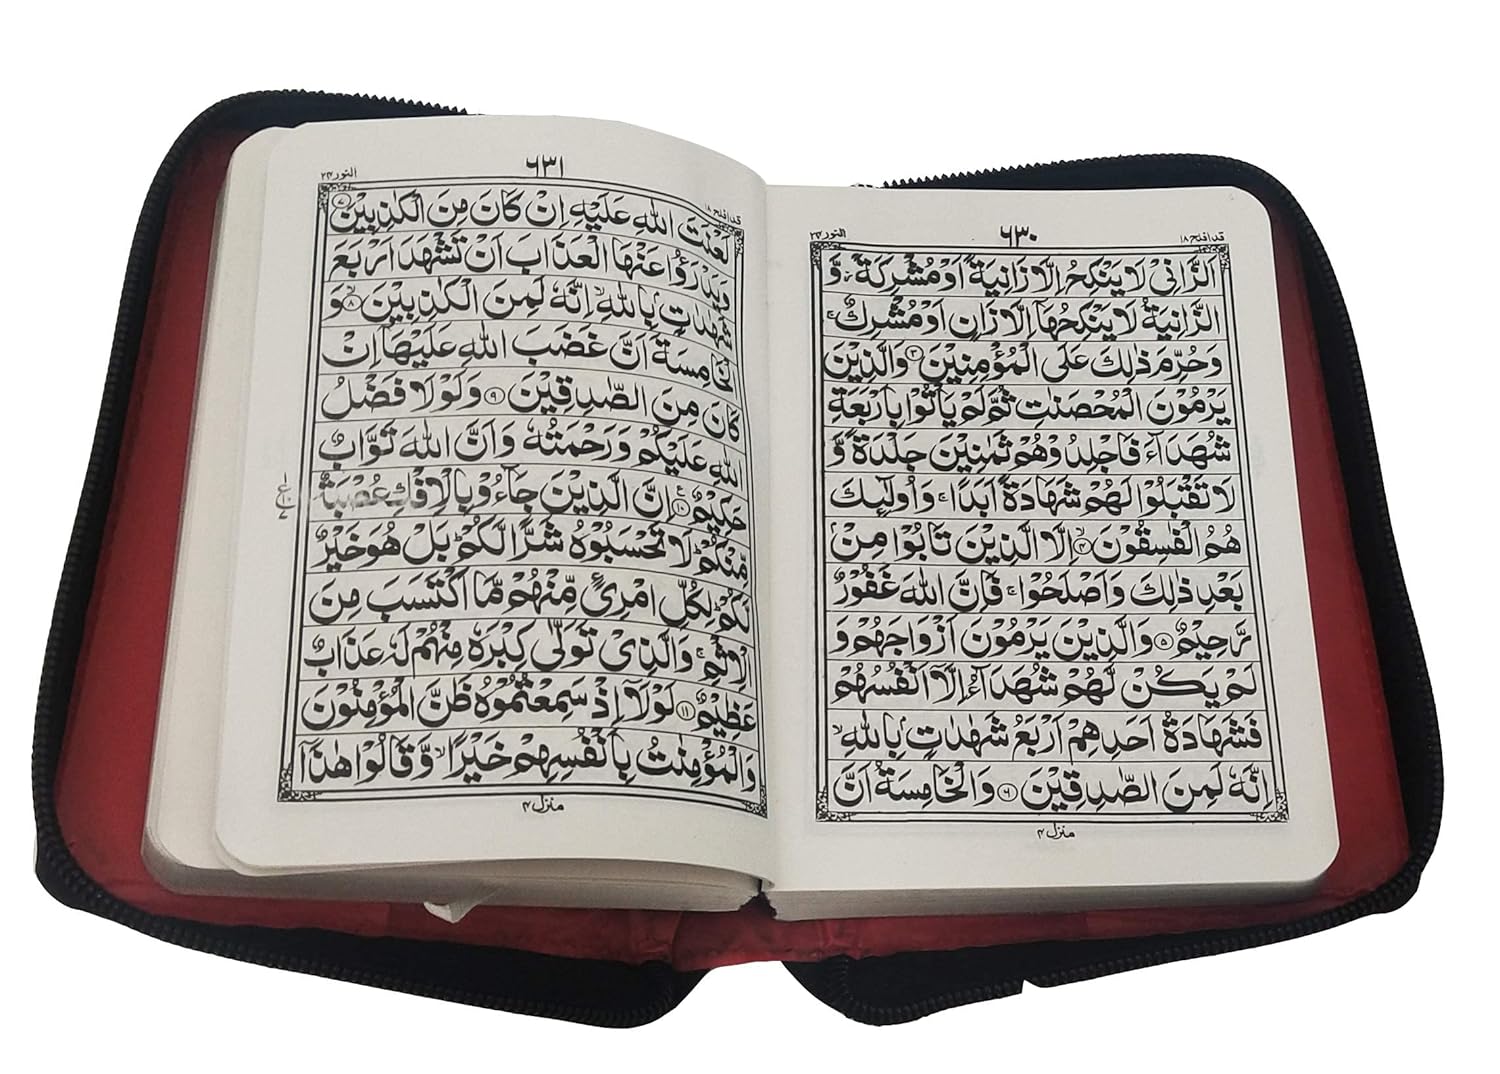 قد افلح ۱۸
۶۳۰
النور ۲۴
اَلزَّانِیْ لَا یَنْكِحُ اِلَّا زَانِیَةً اَوْ مُشْرِكَةً ز وَّ
الزَّانِیَةُ لَا یَنْكِحُهَاۤ اِلَّا زَانٍ اَوْ مُشْرِكٌ ۚ
وَحُرِّمَ ذٰلِكَ عَلَی الْمُؤْمِنِیْنَ ۳ وَالَّذِیْنَ
یَرْمُوْنَ الْمُحْصَنٰتِ ثُمَّ لَمْ یَاْتُوْا بِاَرْبَعَةِ
شُهَدَآءَ فَاجْلِدُوْهُمْ ثَمٰنِیْنَ جَلْدَةً وَّ
لَا تَقْبَلُوْا لَهُمْ شَهَادَةً اَبَدًا ۚ وَاُولٰٓئِكَ
هُمُ الْفٰسِقُوْنَ ۴ اِلَّا الَّذِیْنَ تَابُوْا مِنْۢ
بَعْدِ ذٰلِكَ وَاَصْلَحُوْا ۚ فَاِنَّ اللّٰهَ غَفُوْرٌ
رَّحِیْمٌ ۵ وَالَّذِیْنَ یَرْمُوْنَ اَزْوَاجَهُمْ وَ
لَمْ یَكُنْ لَّهُمْ شُهَدَآءُ اِلَّاۤ اَنْفُسُهُمْ
فَشَهَادَةُ اَحَدِهِمْ اَرْبَعُ شَهٰدٰتٍۭ بِاللّٰهِ ۙ
اِنَّهٗ لَمِنَ الصّٰدِقِیْنَ ۶ وَالْخَامِسَةُ اَنَّ
منزل ۴
قد افلح ۱۸
۶۳۱
النور ۲۴
لَعْنَتَ اللّٰهِ عَلَیْهِ اِنْ كَانَ مِنَ الْكٰذِبِیْنَ ۷
وَیَدْرَؤُا عَنْهَا الْعَذَابَ اَنْ تَشْهَدَ اَرْبَعَ
شَهٰدٰتٍۭ بِاللّٰهِ ۙ اِنَّهٗ لَمِنَ الْكٰذِبِیْنَ ۙ ۸ وَ
الْخَامِسَةَ اَنَّ غَضَبَ اللّٰهِ عَلَیْهَاۤ اِنْ
كَانَ مِنَ الصّٰدِقِیْنَ ۹ وَلَوْلَا فَضْلُ
اللّٰهِ عَلَیْكُمْ وَرَحْمَتُهٗ وَاَنَّ اللّٰهَ تَوَّابٌ
حَكِیْمٌ ۱۰ ع اِنَّ الَّذِیْنَ جَآءُوْ بِالْاِفْكِ عُصْبَةٌ
مِّنْكُمْ ؕ لَا تَحْسَبُوْهُ شَرًّا لَّكُمْ ؕ بَلْ هُوَ خَیْرٌ
لَّكُمْ ؕ لِكُلِّ امْرِئٍ مِّنْهُمْ مَّا اكْتَسَبَ مِنَ
الْاِثْمِ ۚ وَالَّذِیْ تَوَلّٰی كِبْرَهٗ مِنْهُمْ لَهٗ عَذَابٌ
عَظِیْمٌ ۱۱ لَوْلَاۤ اِذْ سَمِعْتُمُوْهُ ظَنَّ الْمُؤْمِنُوْنَ
وَالْمُؤْمِنٰتُ بِاَنْفُسِهِمْ خَیْرًا ۙ وَّقَالُوْا هٰذَاۤ
منزل ۴